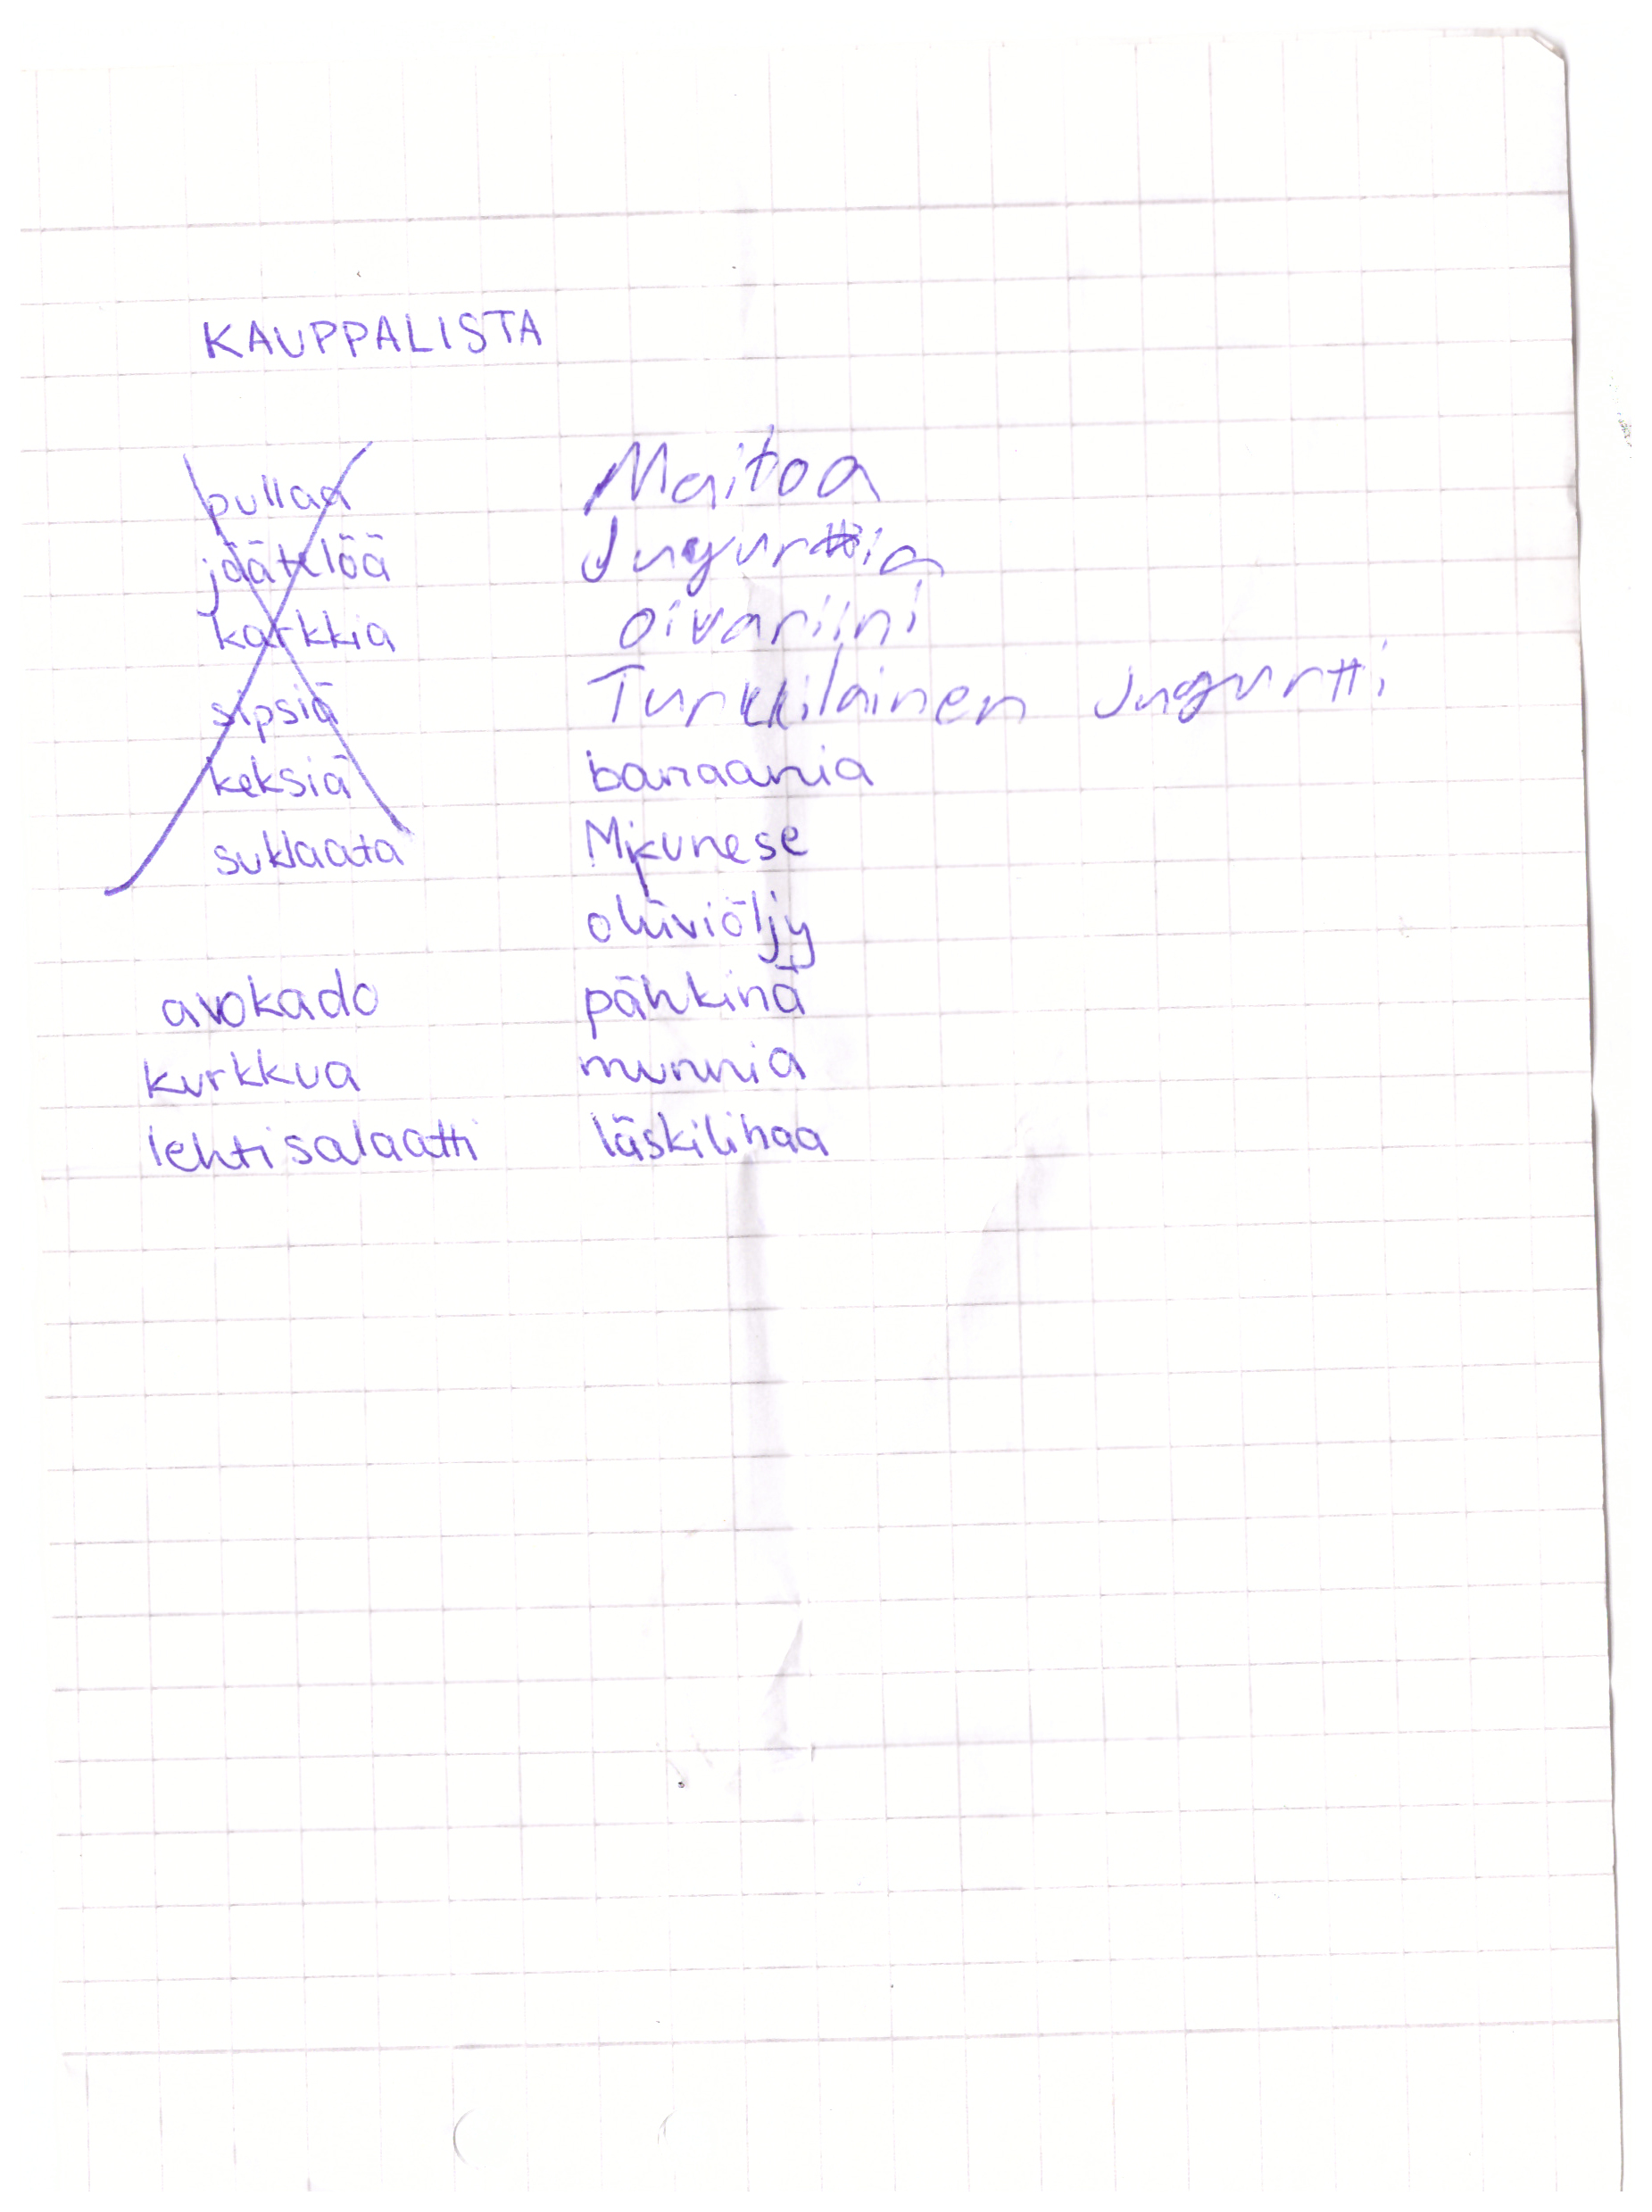 KAUPPALISTA
pullaa
jäätelöä
karkkia
sipsiä
keksiä
suklaata
avokado
kurkkua
lehtisalaatti
Maitoa
Jugurttia
oivariini
Turkkilainen Jugurtti
banaania
oliiviöljy
pähkinä
munnia
läskilihaa